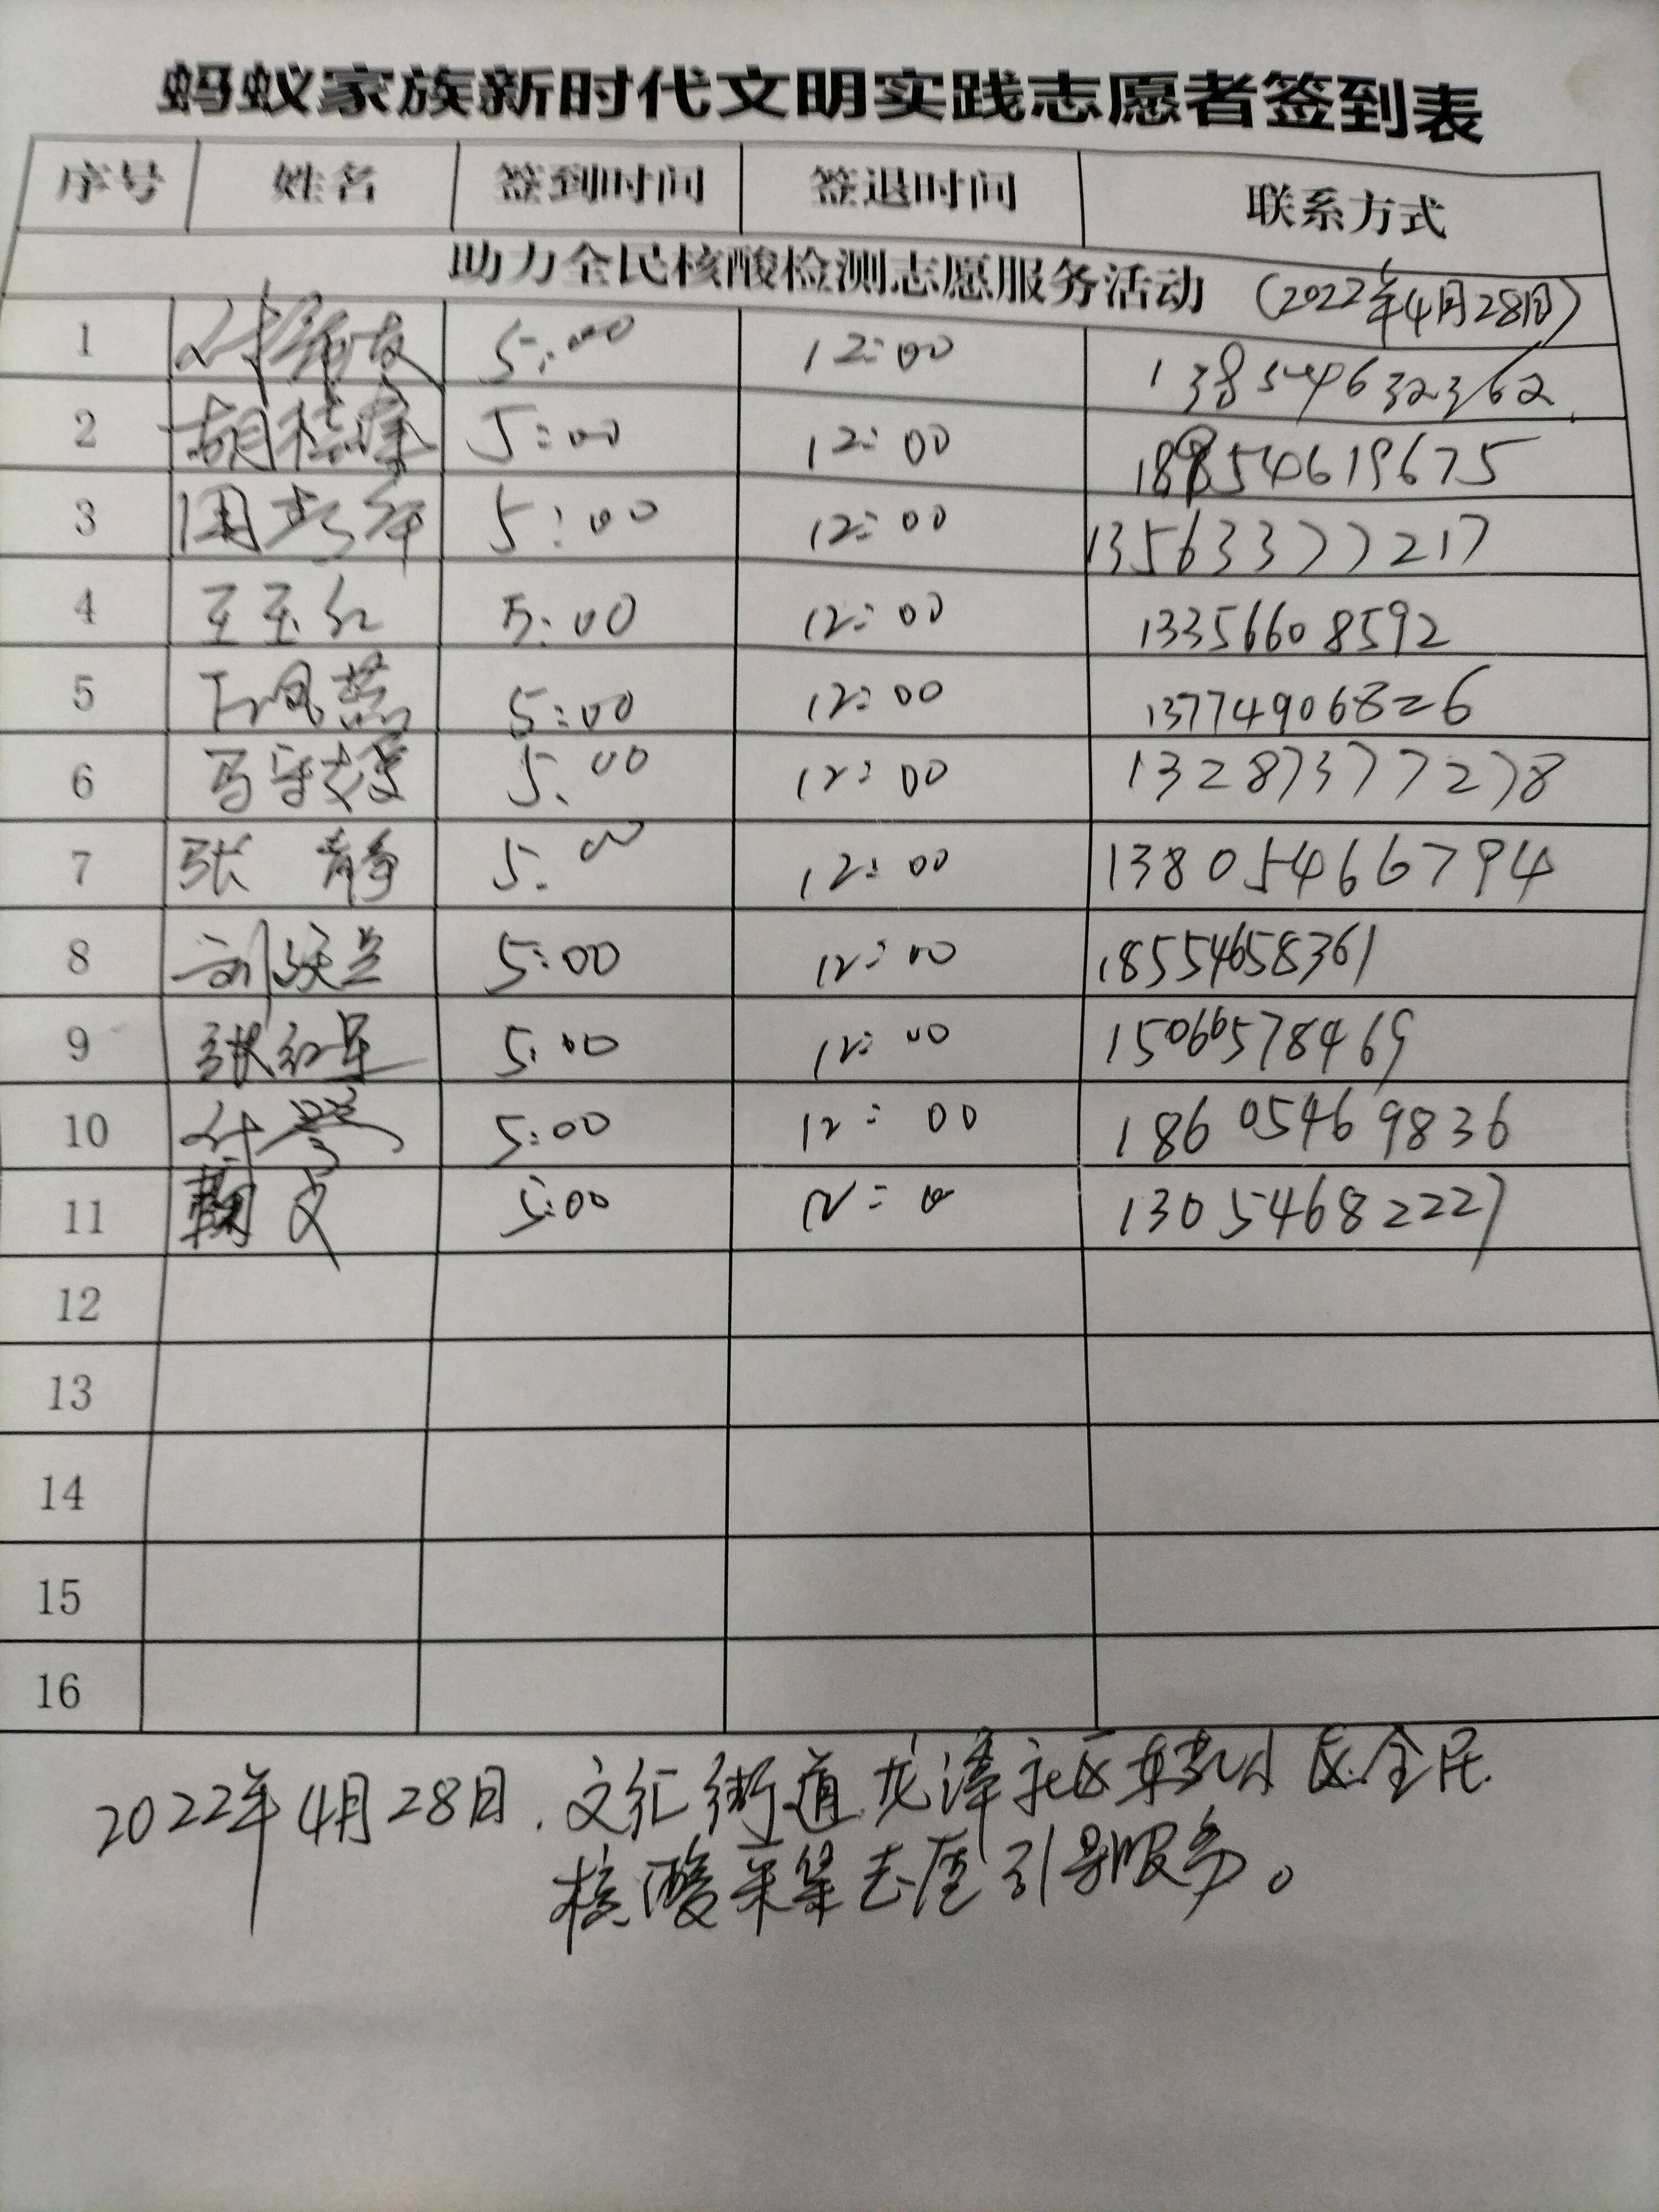 蚂蚁家族新时代文明实践志愿者签到表
序号 姓名 签到时间 签退时间 联系方式
助力全民核酸检测志愿服务活动 (2022年4月28日)
1 5:00 12:00
2 5:00 12:00 18954619675
3 5:00 12:00 13563377217
4 王玉红 5:00 12:00 13356608592
5 5:00 12:00 13774906826
6 5:00 12:00 13287377278
7 张静 5:00 12:00 13805466794
8 5:00 12:00 18554658361
9 张红星 5:00 12:00 15066578469
10 5:00 12:00 18605469836
11 5:00 12:00 13054682227
12
13
14
15
16
2022年4月28日.文汇街道龙泽社区 小区全民
核酸采集志愿引导服务。